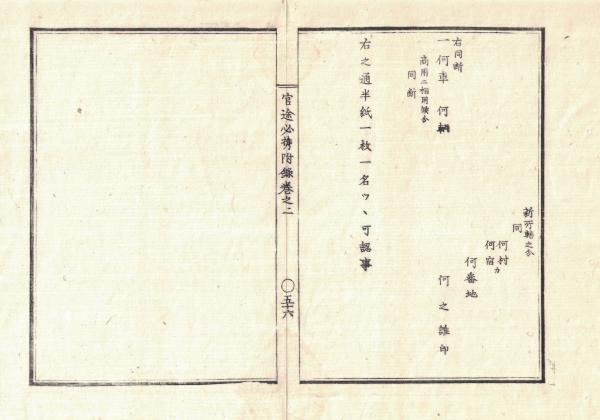 新所轄之分
同
何村カ
何宿
何番地
何之誰印
右同断
一何車 何輌
商用ニ相用候分
同断
右之通半紙一枚一名ツヽ可認事
官途必携附録巻之二
〇五十六